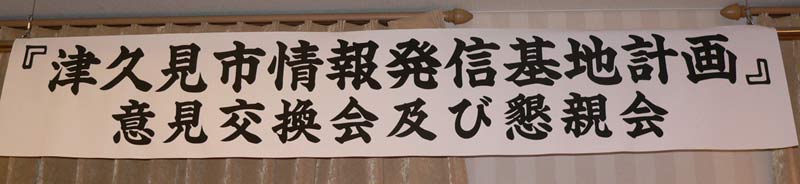 『津久見市情報発信基地計画』
意見交換会及び懇親会